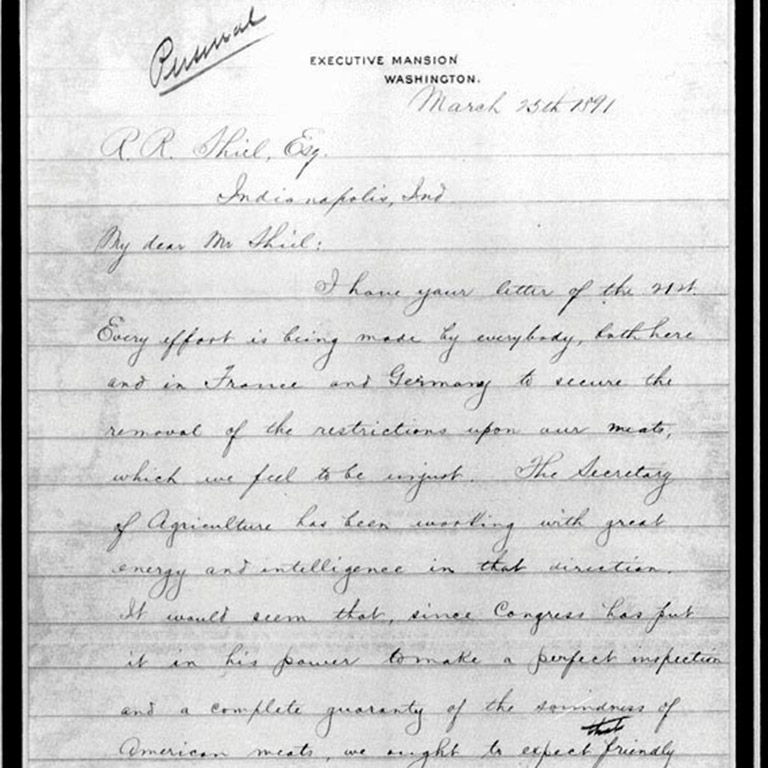 Personal
EXECUTIVE MANSION
WASHINGTON.
March 25th 1891
R. R. Shiel, Esq.
Indianapolis, Ind
My dear Mr Shiel:
I have your letter of the 21st.
Every effort is being made by everybody, both here
and in France and Germany to secure the
removal of the restrictions upon our meats,
which we feel to be unjust. The Secretary
of Agriculture has been working with great
energy and intelligence in that direction.
It would seem that, since Congress has put
it in his power to make a perfect inspection
and a complete guaranty of the soundness of
that
American meats, we ought to expect friendly